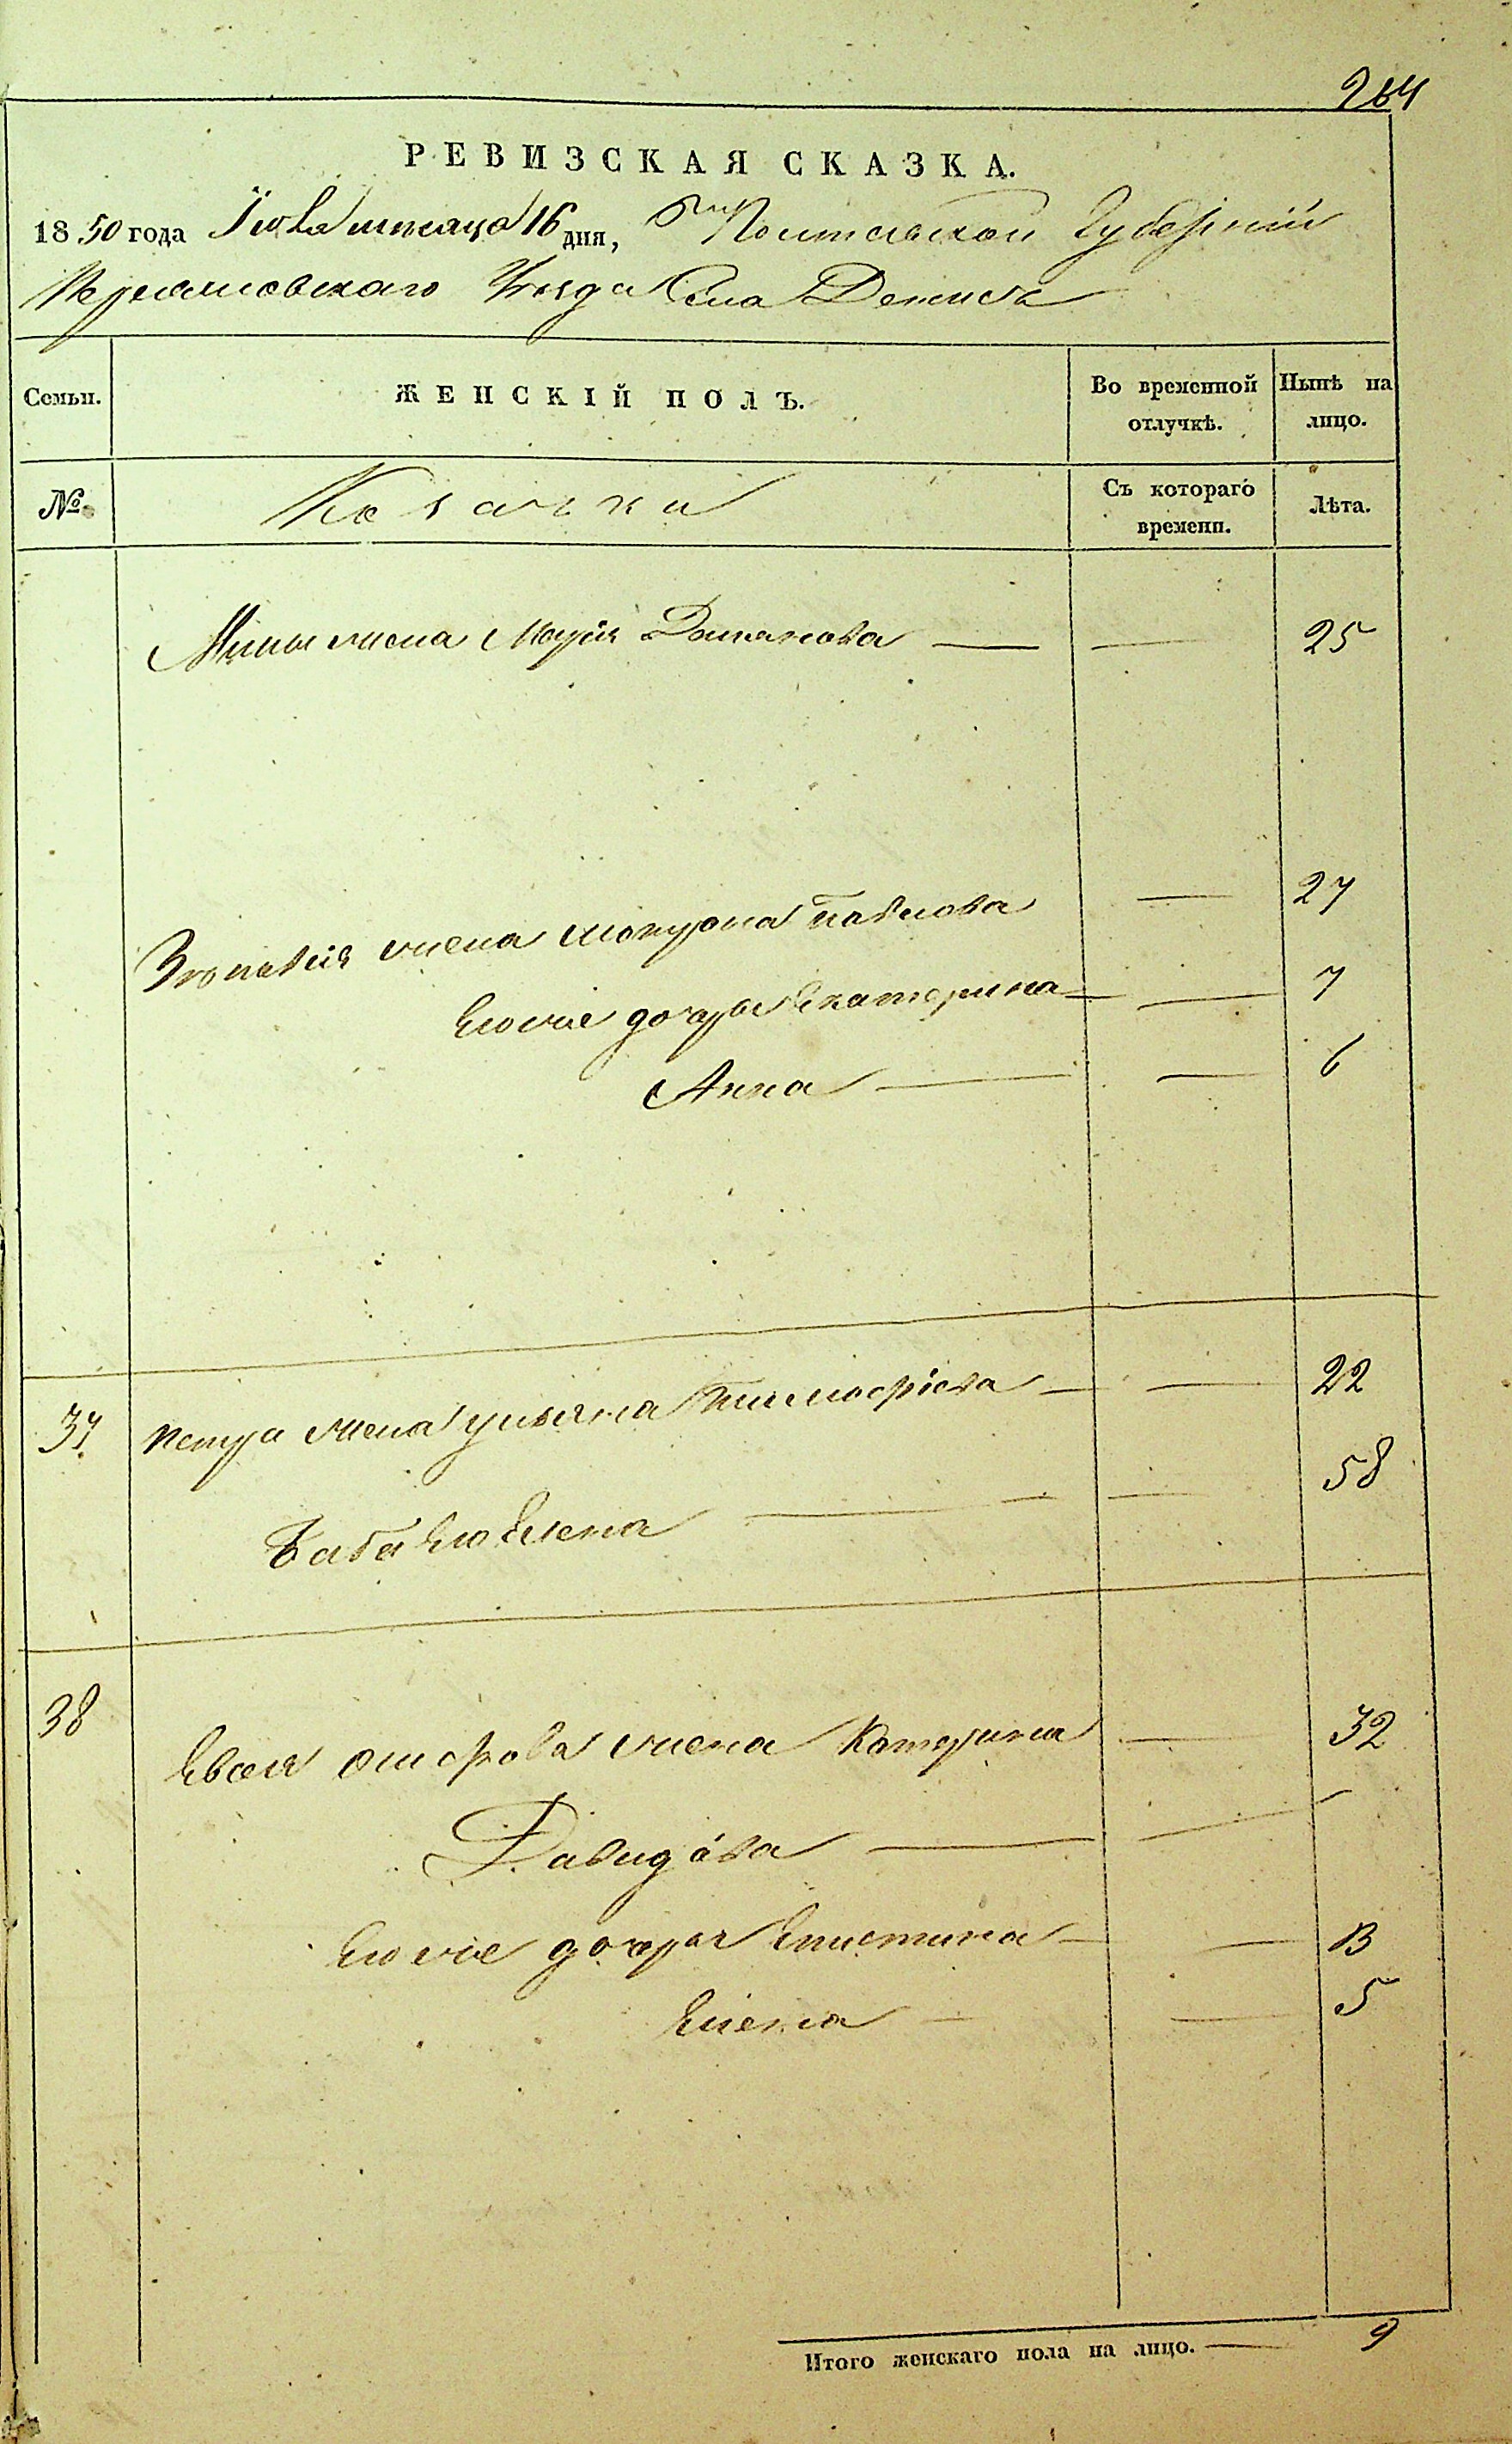 264
РЕВИЗСКАЯ СКАЗКА.
1850 года Іюля месяца 16 дня, Полтавской Губерніи
Переяславскаго Уезда Села Денисъ
Семьи. ЖЕНСКІЙ ПОЛЪ. Во временной отлучкѣ. Нынѣ на лицо.
№ Козачки Съ котораго времени. Лѣта.
жена Марія Романова — — 25
жена Мокрина Павлова — 27
Егоже дочери Екатерина — — 7
Анна — — 6
37. Петра жена Ульяна Тимофіева — — 22
Баба Его Елена — — 58
38 жена Катерина — 32
Давидова — —
Егоже дочери Епистима — — 13
Елена — — 5
Итого женскаго пола на лицо. — 9